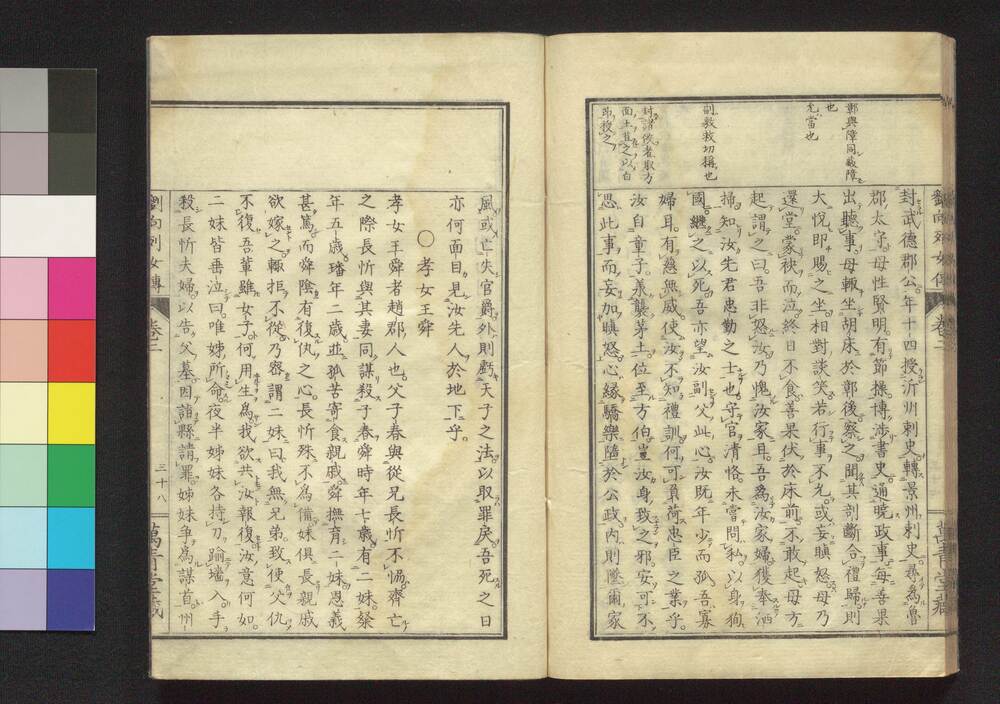 鄣與障同蔽障
也
允當也
剖敎救切擯也
封諸侯者取方
面土苴之以白
茆授之
劉向列女傳 卷二 萬靑堂藏
封武德郡公年十四授沂州刺史轉景州刺史尋爲魯
郡太守母性賢明有節操博涉書史通曉政事每善果
出聽事母輙坐胡床於鄣後察之聞其剖斷合禮歸則
大悅即賜之坐相對談笑若行事不允或妄瞋怒母乃
還堂蒙袂而泣終日不食善果伏於床前不敢起母方
起謂之曰吾非怒汝乃愧汝家耳吾爲汝家婦獲奉洒
掃知汝先君忠勤之士也守官淸恪未嘗問私以身狥
國繼之以死吾亦望汝副父此心汝旣年少而孤吾寡
婦耳有慈無威使汝不知禮訓何可負荷忠臣之業乎
汝自童子羕襲茅土位至方伯豈汝身致之邪安可不
思此事而妄加瞋怒心緣驕樂隨於公政內則墜爾家
風或亡失官爵外則虧天子之法以取罪戾吾死之日
亦何面目見汝先人於地下乎
○孝女王舜
孝女王舜者趙郡人也父子春與從兄長忻不協齊亡
之際長忻與其妻同謀殺子春舜時年七歲有二妹粲
年五歲璠年二歲並孤苦寄食親戚舜撫育二妹恩義
甚篤而舜陰有復仇之心長忻殊不爲備妹俱長親戚
欲嫁之輙拒不從乃密謂二妹曰我無兄弟致使父仇
不復吾輩雖女子何用生爲我欲共汝報復汝意何如
二妹皆垂泣曰唯姊所命夜半姊妹各持刀踰墻入手
殺長忻夫婦以告父墓因詣縣請罪姊妹爭爲謀首州
劉向列女傳 卷二 三十八 萬靑堂藏